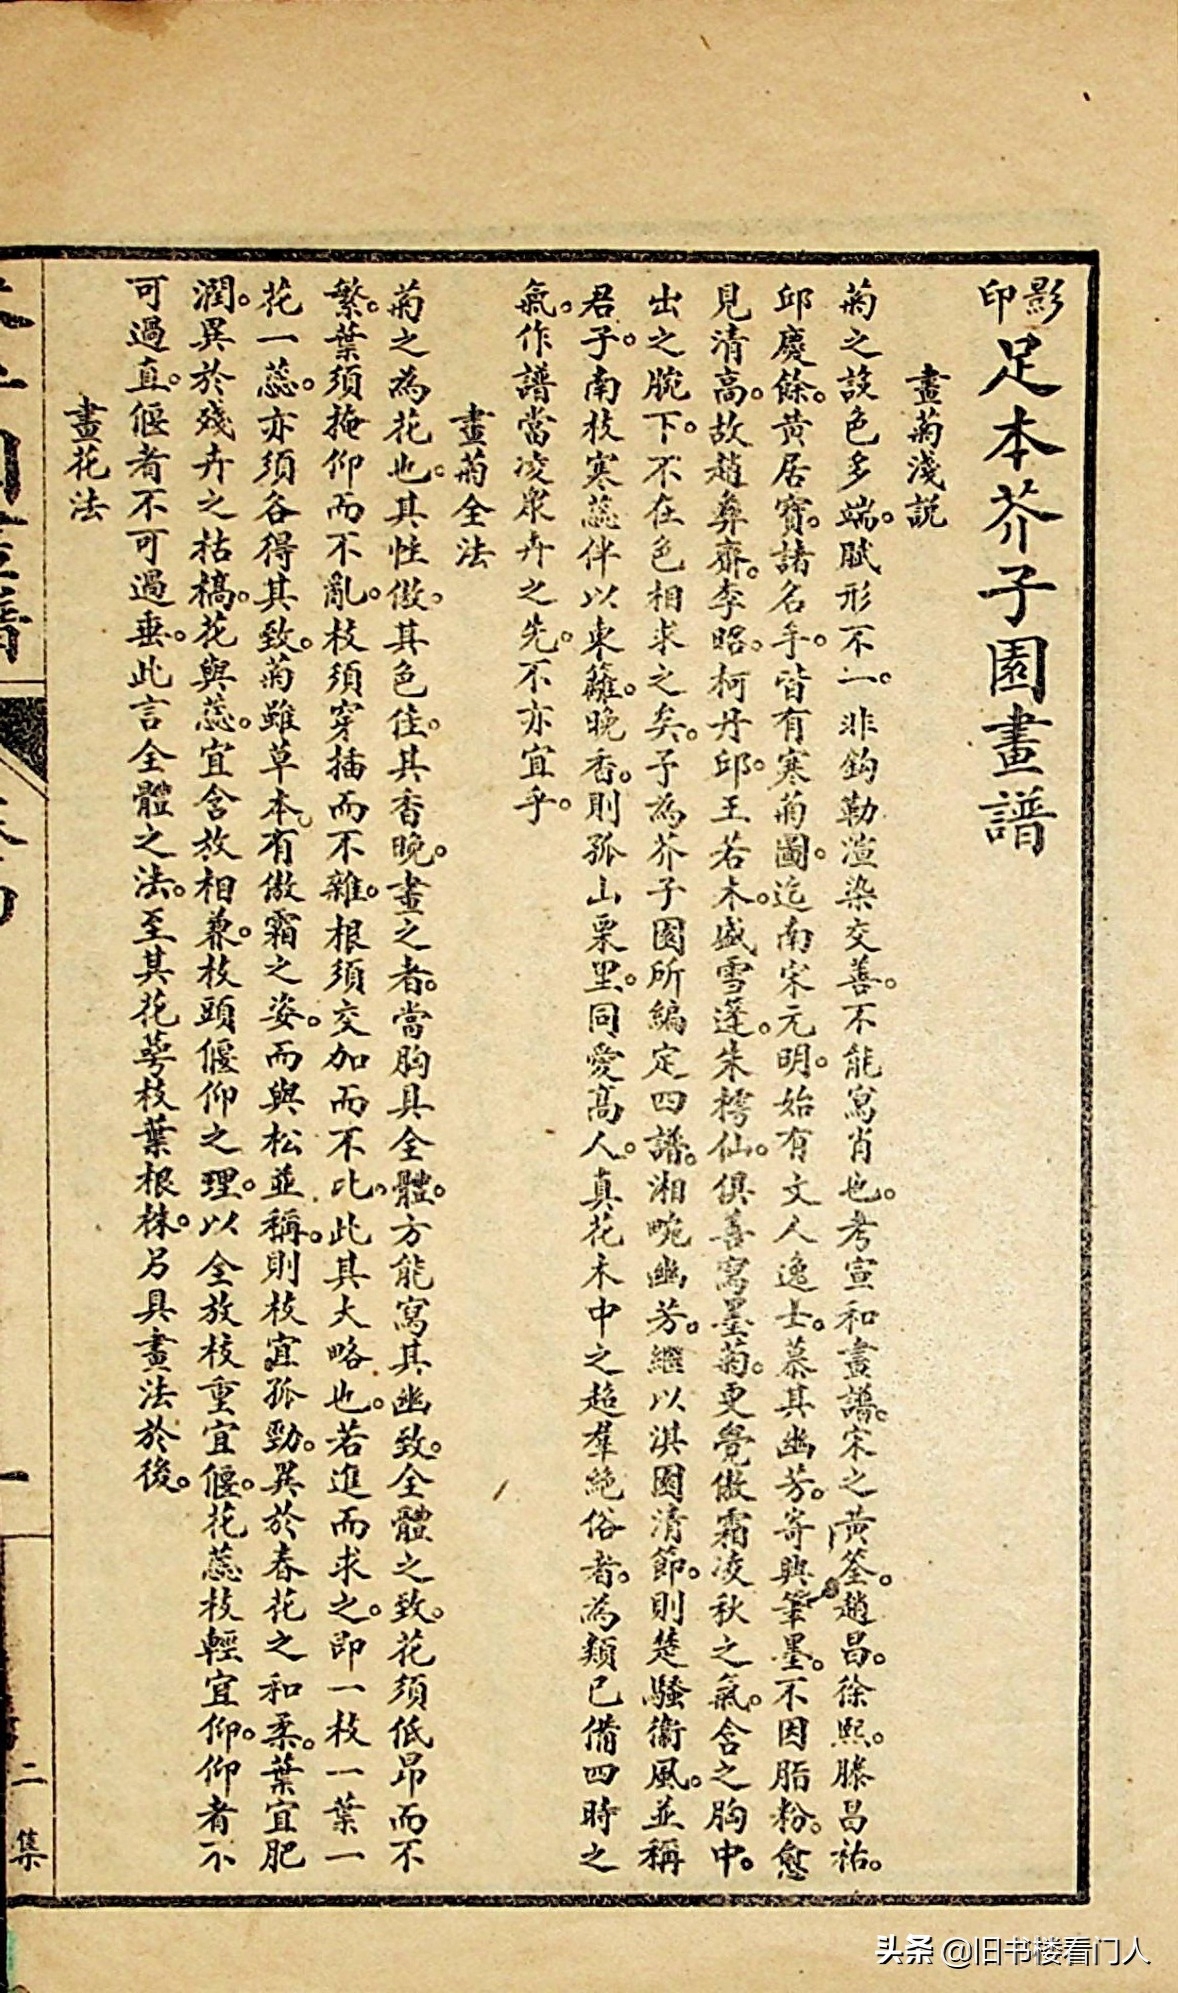 影印足本芥子園畫譜
畫菊淺説
菊之設色多端。賦形不一。非鈎勒渲染交善。不能寫肖也。考宣和畫譜。宋之黃筌。趙昌。徐熙。滕昌祐。
邱慶餘。黃居寶。諸名手。皆有寒菊圖。迄南宋元明。始有文人逸士。慕其幽芳。寄興筆墨。不因脂粉。愈
見清高。故趙彝齋。李昭。柯丹邱。王若木。盛雪蓬。朱樗仙。俱善寫墨菊。更覺傲霜凌秋之氣。含之胸中。
出之腕下。不在色相求之矣。予為芥子園所編定四譜。湘畹幽芳。繼以淇園清節。則楚騷衛風。並稱
君子。南枝寒蕊伴以東籬。晚香。則孤山栗里。同愛高人。真花木中之超羣絶俗者。為類已備四時之
氣。作譜當凌衆卉之先。不亦宜乎。
畫菊全法
菊之為花也。其性傲。其色佳。其香晚。畫之者。當胸具全體。方能寫其幽致。全體之致。花須低昂而不
繁。葉須掩仰而不亂。枝須穿插而不雜。根須交加而不比。此其大略也。若進而求之。即一枝一葉一
花一蕊。亦須各得其致。菊雖草本。有傲霜之姿。而與松並稱。則枝宜孤勁。異於春花之和柔。葉宜肥
潤。異於殘卉之枯槁。花與蕊。宜含放相兼。枝頭偃仰之理。以全放枝重宜偃。花蕊枝輕宜仰。仰者不
可過直。偃者不可過垂。此言全體之法。至其花萼枝葉根株。另具畫法於後。
畫花法
一
二集
头条 @旧书楼看门人